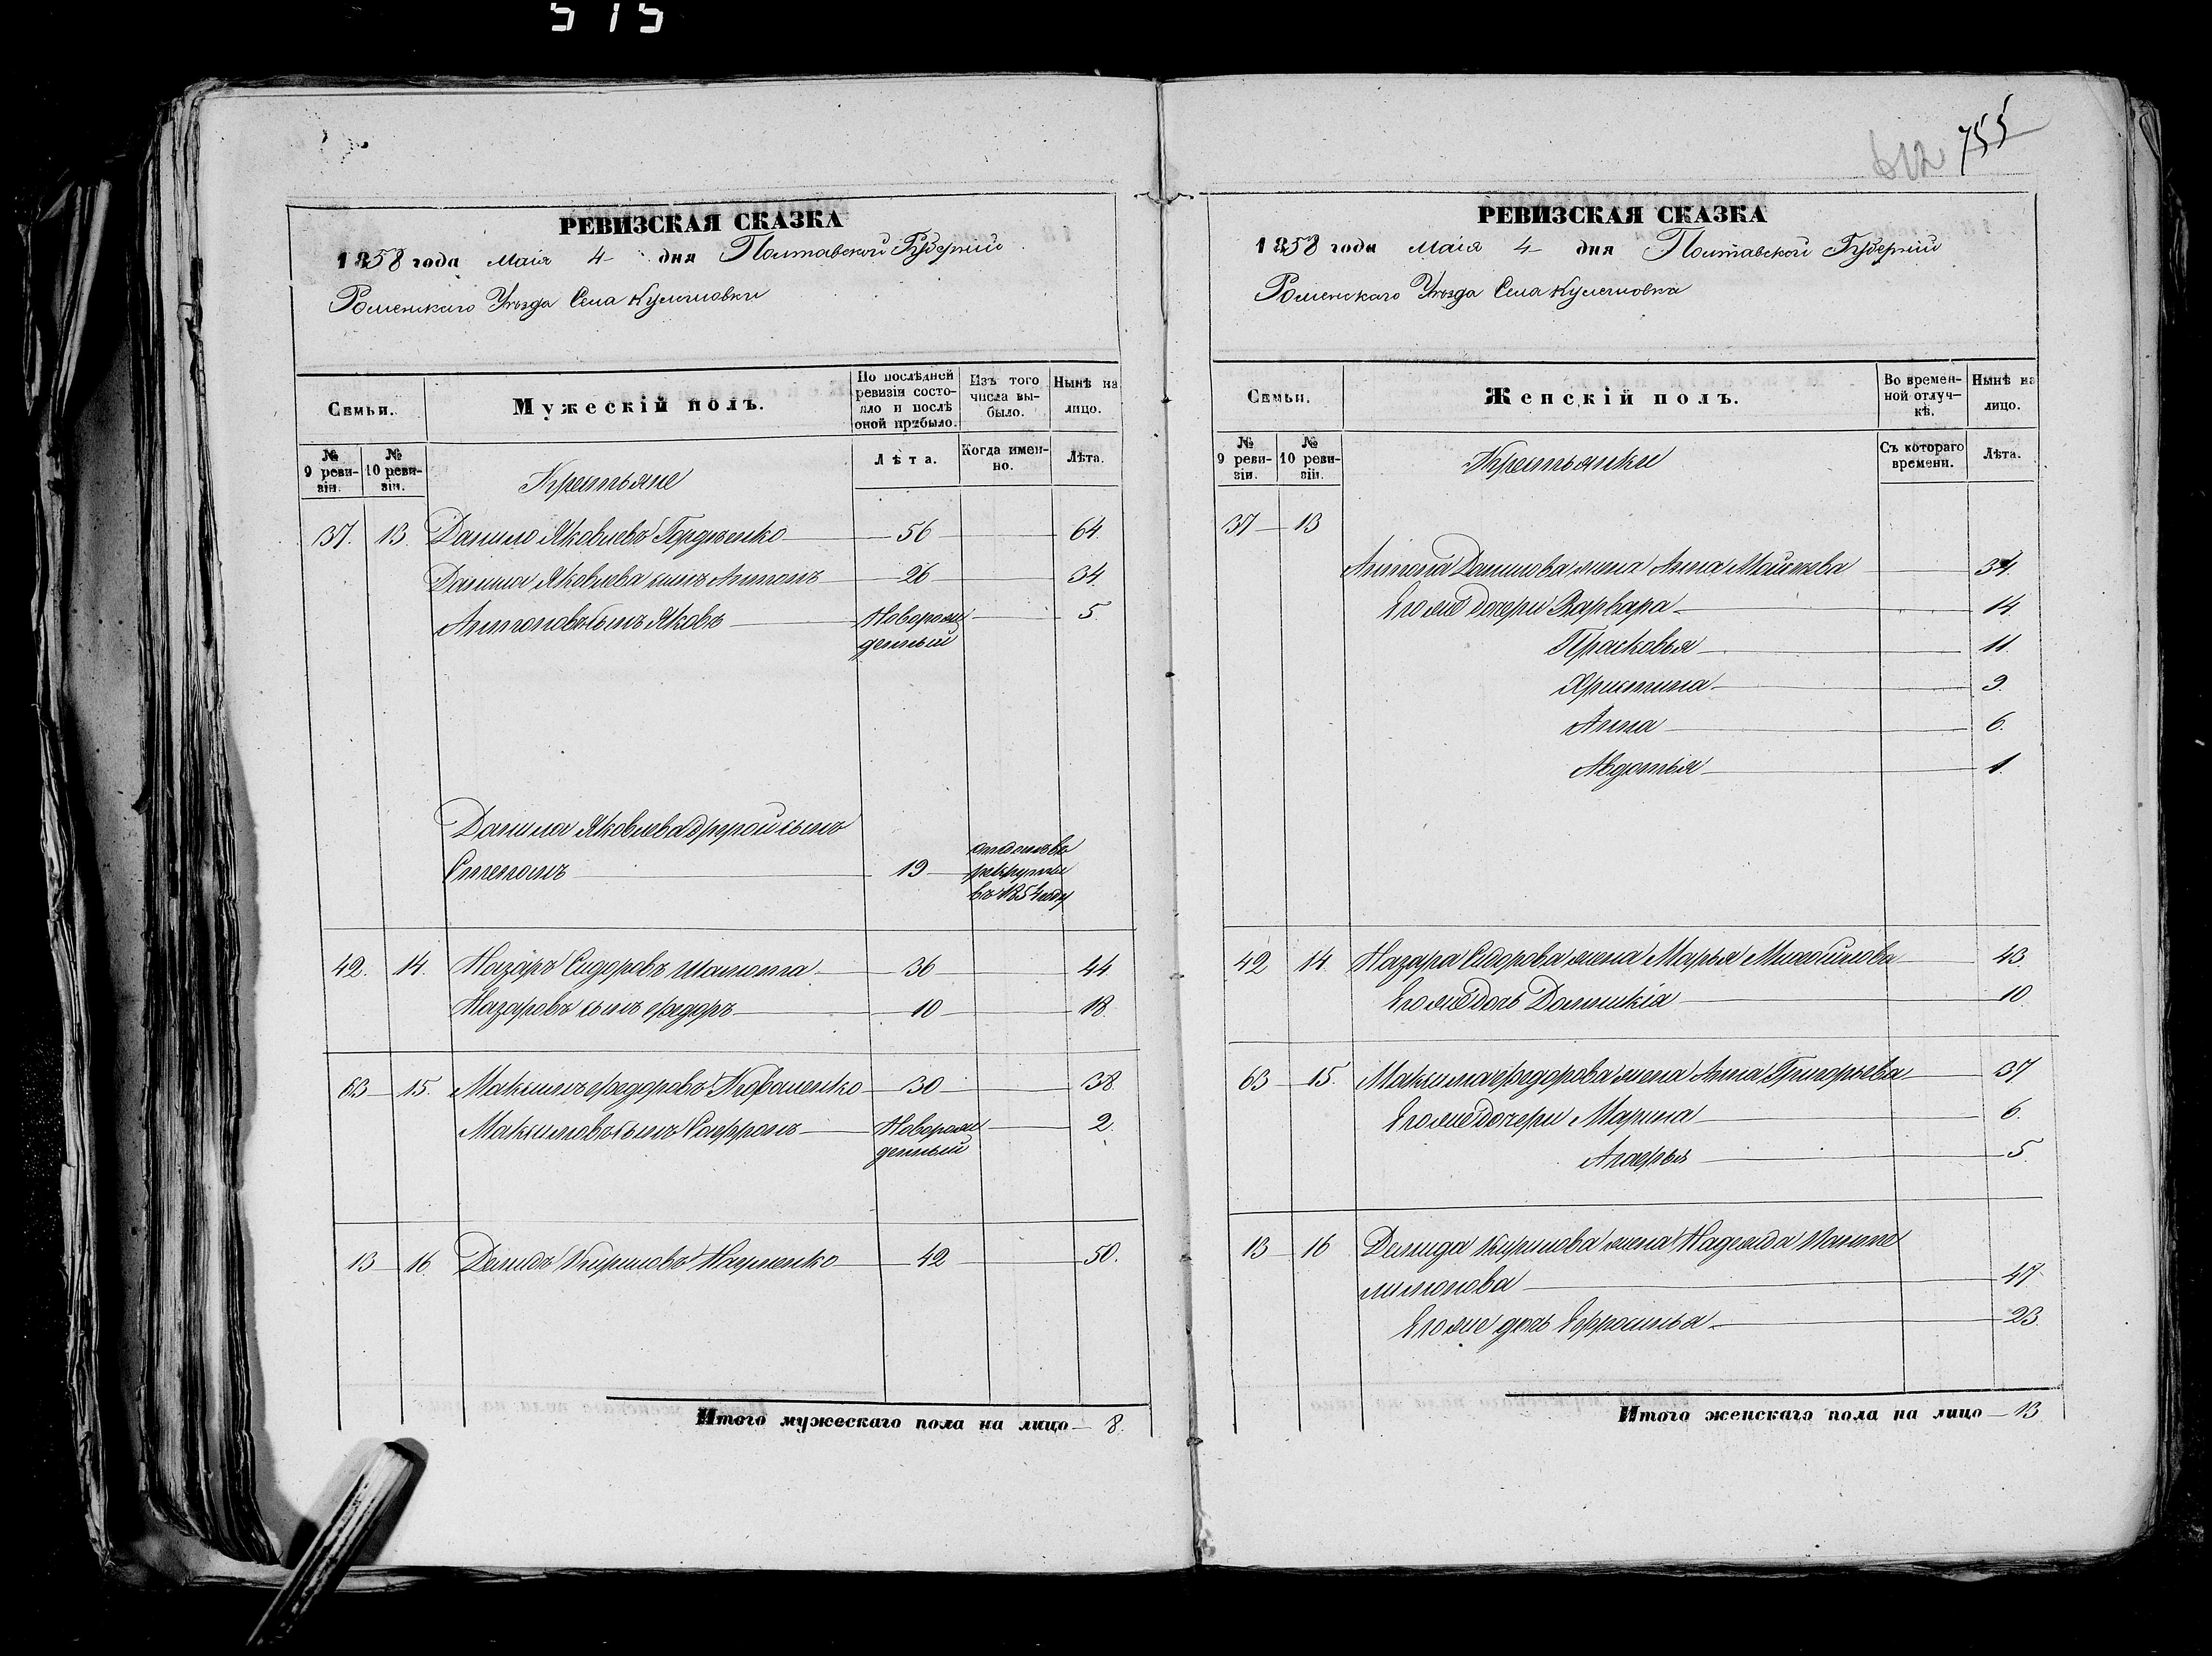 515
РЕВИЗСКАЯ СКАЗКА
1858 года Маія 4 дня Полтавской Губерніи
Роменскаго Уѣзда Села Кулишовки
Семьи.
Мужескій полъ.
По послѣдней ревизіи состояло и послѣ оной прибыло.
Изъ того числа выбыло.
Нынѣ на лицо.
№ 9 ревизіи.
№ 10 ревизіи.
Крестьяне
Лѣта.
Когда именно.
Лѣта.
37. 13. Данило Яковлевъ 56 64.
Данила Яковлева сынъ Антонъ 26 34.
Антоновъ сынъ Яковъ Новорож 5.
денный
Данила Яковлева другой сынъ
Степанъ 19 отданъ въ
рекруты
въ 1854 году
42. 14. Назаръ Сидоровъ 36 44
Назаровъ сынъ Федоръ 10 18.
63 15. Максимъ Федоровъ 30 38.
Максимовъ сынъ Софронъ Новорож 2.
денный
13 16 Демидъ Кириловъ Науменко 42 50.
Итого мужескаго пола на лицо 8.
612 755
РЕВИЗСКАЯ СКАЗКА
1858 года Маія 4 дня Полтавской Губерніи
Роменскаго Уѣзда Села Кулишовки
Семьи.
Женскій полъ.
Во временной отлучкѣ.
Нынѣ на лицо.
№ 9 ревизіи.
№ 10 ревизіи.
Крестьянки
Съ котораго времени.
Лѣта.
37 13
Антона Данилова жена Анна 34.
Его же дочери Варвара 14.
Прасковья 11.
Христина 9.
Анна 6.
Авдотья 1.
42 14. Назара Сидорова жена Марья Михайлова 43.
Его же дочь Домникія 10.
63 15. Максима Федорова жена Анна Григорьева 37
Его же дочери Марина 6.
Агафья 5.
13 16 Демида Кирилова жена Надежда Панте
лимонова 47.
Его же дочь Ефросинья 23.
Итого женскаго пола на лицо 13